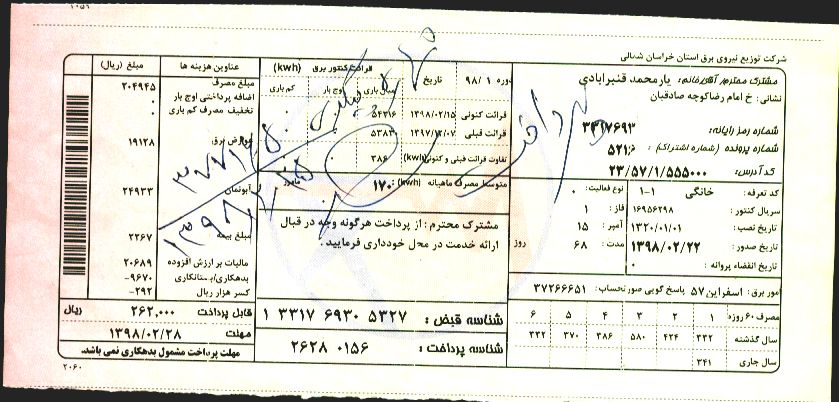 ۱۰۵۹
شرکت توزیع نیروی برق استان خراسان شمالی
مشترک محترم آقای/خانم: یارمحمد قنبرآبادی
نشانی: خ امام رضاکوچه صادقیان
شماره رمز رایانه: ۳۳۱۷۶۹۳
شماره پرونده (شماره اشتراک):
کد آدرس: ۲۳/۵۷/۱/۵۵۵۰۰۰
کد تعرفه: خانگی ۱-۱
نوع فعالیت: ۰
سریال کنتور: ۱۶۹۵۶۲۹۸
فاز: ۱
تاریخ نصب: ۱۳۲۰/۰۱/۰۱
آمپر: ۱۵
تاریخ صدور: ۱۳۹۸/۰۲/۲۲
مدت: ۶۸ روز
تاریخ انقضاء پروانه: ۰
امور برق: اسفراین ۵۷ پاسخ گویی صورتحساب: ۳۷۲۶۶۶۵۱
مصرف ۶۰ روزه ۱ ۲ ۳ ۴ ۵ ۶
سال گذشته ۳۳۲ ۴۲۴ ۵۸۰ ۳۸۶ ۳۷۰ ۳۳۲
سال جاری ۳۴۱
دوره ۱ /۹۸
تاریخ
قرائت کنتور برق (kwh)
میان باری اوج بار کم باری
قرائت کنونی ۱۳۹۸/۰۲/۱۵
قرائت قبلی ۱۳۹۷/۱۲/۰۷
تفاوت قرائت قبلی و کنونی (kwh) ۳۸۶
متوسط مصرف ماهیانه (kwh) ۱۷۰
مشترک محترم: از پرداخت هرگونه وجه در قبال
ارائه خدمت در محل خودداری فرمایید.
شناسه قبض: ۱ ۳۳۱۷ ۶۹۳۰ ۵۳۲۷
شناسه پرداخت: ۲۶۲۸ ۰۱۵۶
عناوین هزینه ها مبلغ (ریال)
مبلغ مصرف ۲۰۴۹۴۵
اضافه پرداختی اوج بار ۰
تخفیف مصرف کم باری ۰
عوارض برق ۱۹۱۲۸
آبونمان ۲۴۹۳۳
مبلغ بیمه ۲۲۶۷
مالیات بر ارزش افزوده ۲۰۶۸۹
بدهکاری/بستانکاری -۹۶۷۰
کسر هزار ریال -۲۹۲
قابل پرداخت ۲۶۲,۰۰۰ ریال
مهلت ۱۳۹۸/۰۲/۲۸
مهلت پرداخت مشمول بدهکاری نمی باشد.
۲۰۶۰